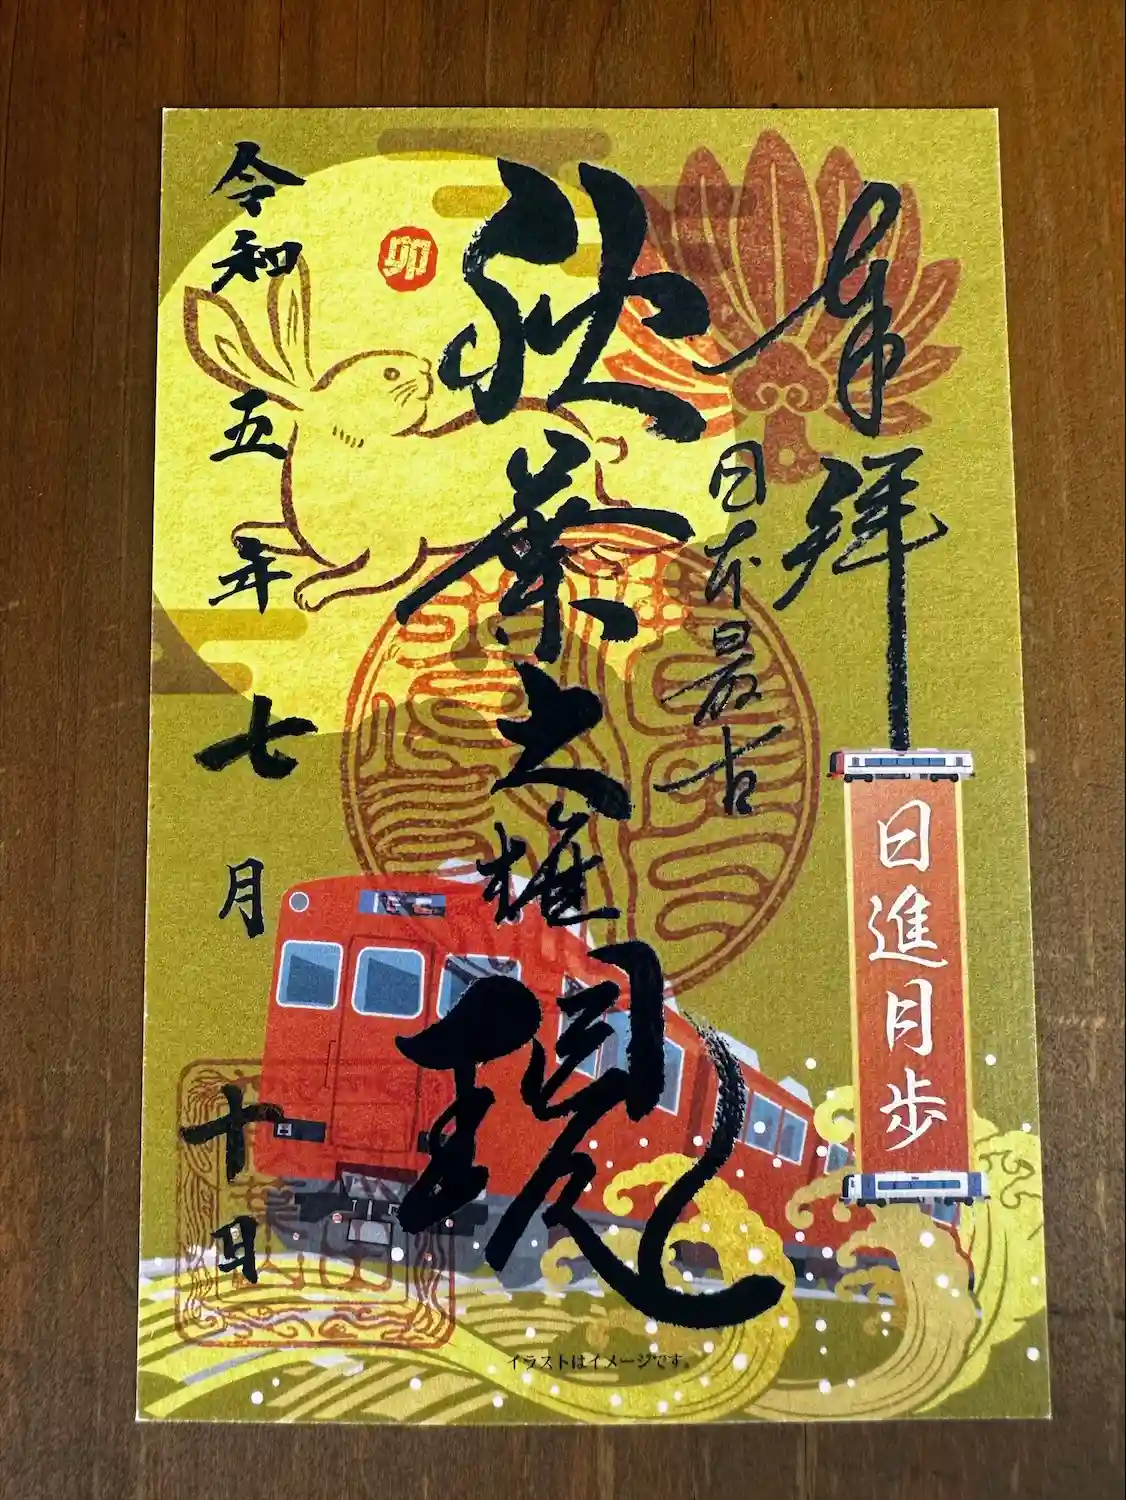 奉拝
日本最古
秋葉大権現
令和五年七月十日
卯
日進月歩
イラストはイメージです。